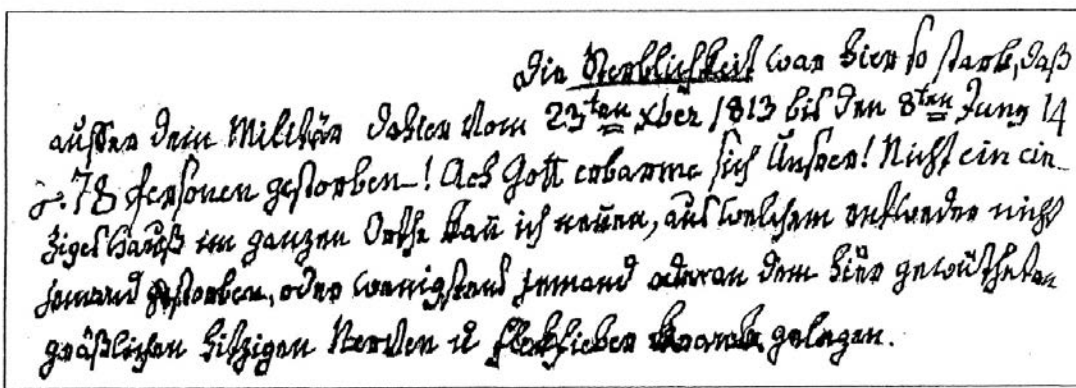 Die Sterblichkeit war hier so stark, daß
ausser dem Militär dahier vom 23ten xber 1813 bis den 8ten Juny 14
78 Personen gestorben_! Ach Gott erbarme sich Unser! Nicht ein ein-
ziges Hauß im ganzen Orthe kan̄ ich nen̄en, aus welchem entweder nicht
jemand gestorben, oder wenigstens jemand an dem hier gewütheten
gräßlichen hitzigen Nerven u Fleckfieber krank gelegen.